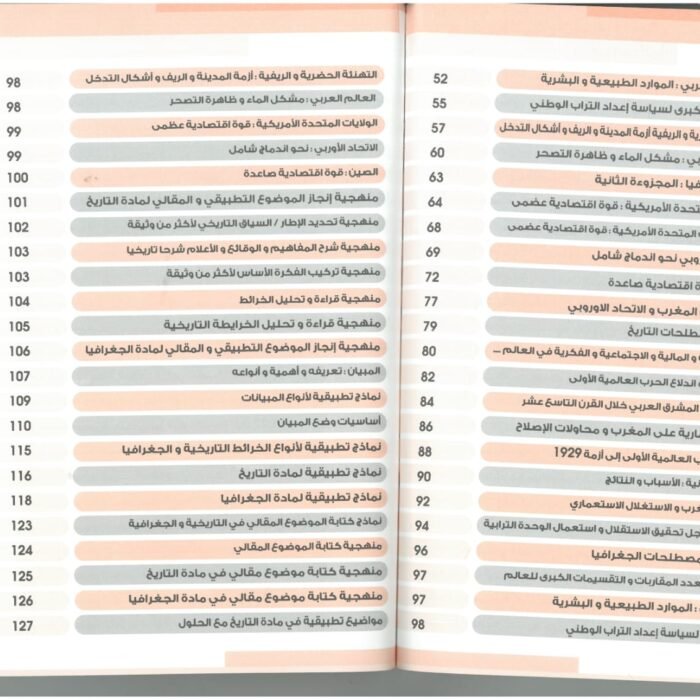 ربي : الموارد الطبيعية و البشرية 52
كبرى لسياسة إعداد التراب الوطني 55
ية و الريفية أزمة المدينة و الريف و أشكال التدخل 57
بي : مشكل الماء و ظاهرة التصحر 60
فيا : المجزوءة الثانية 63
تحدة الأمريكية : قوة اقتصادية عضمى 64
ت المتحدة الأمريكية : قوة اقتصادية عضمى 68
وروبي نحو اندماج شامل 69
ة اقتصادية صاعدة 72
المغرب و الاتحاد الاوروبي 77
صطلحات التاريخ 79
ة و المالية و الاجتماعية و الفكرية في العالم ... 80
اندلاع الحرب العالمية الأولى 82
المشرق العربي خلال القرن التاسع عشر 84
مارية على المغرب و محاولات الإصلاح 86
ب العالمية الأولى إلى أزمة 1929 88
نية : الأسباب و النتائج 90
غرب و الاستغلال الاستعماري 92
جل تحقيق الاستقلال و استعمال الوحدة الترابية 94
مصطلحات الجغرافيا 96
عدد المقاربات و التقسيمات الكبرى للعالم 97
: الموارد الطبيعية و البشرية 97
لسياسة إعداد التراب الوطني 98
التهنئة الحضرية و الريفية : أزمة المدينة و الريف و أشكال التدخل 98
العالم العربي : مشكل الماء و ظاهرة التصحر 98
الولايات المتحدة الأمريكية : قوة اقتصادية عظمى 99
الاتحاد الأوربي : نحو اندماج شامل 99
الصين : قوة اقتصادية صاعدة 100
منهجية إنجاز الموضوع التطبيقي و المقالي لمادة التاريخ 101
منهجية تحديد الإطار / السياق التاريخي لأكثر من وثيقة 102
منهجية شرح المفاهيم و الوقائع و الأعلام شرحا تاريخيا 103
منهجية تركيب الفكرة الأساس لأكثر من وثيقة 103
منهجية قراءة و تحليل الخرائط 104
منهجية قراءة و تحليل الخرايطة التاريخية 105
منهجية إنجاز الموضوع التطبيقي و المقالي لمادة الجغرافيا 106
المبيان : تعريفه و أهمية و أنواعه 107
نماذج تطبيقية لأنواع المبيانات 109
أساسيات وضع المبيان 110
نماذج تطبيقية لأنواع الخرائط التاريخية و الجغرافيا 115
نماذج تطبيقية لمادة التاريخ 116
نماذج تطبيقية لمادة الجغرافيا 118
نماذج كتابة الموضوع المقالي في التاريخية و الجغرافية 123
منهجية كتابة الموضوع المقالي 124
منهجية كتابة موضوع مقالي في مادة التاريخ 125
منهجية كتابة موضوع مقالي في مادة الجغرافيا 126
مواضيع تطبيقية في مادة التاريخ مع الحلول 127